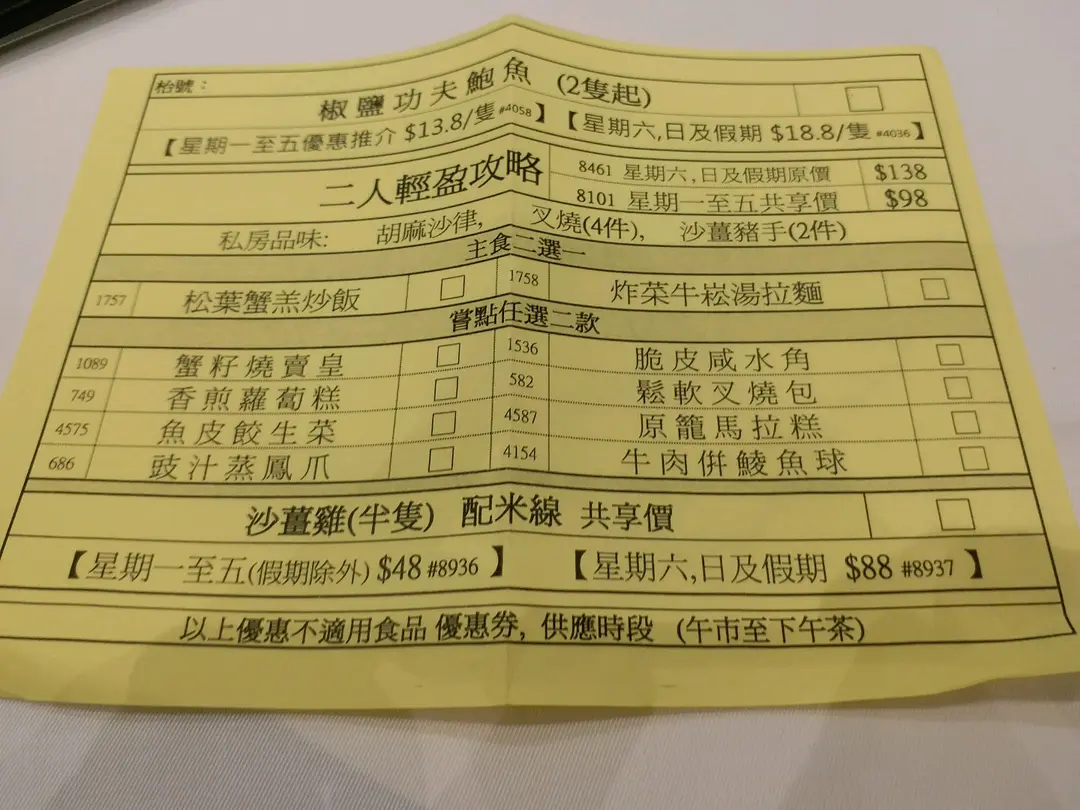 枱號：
椒鹽功夫鮑魚 (2隻起)
【星期一至五優惠推介 $13.8/隻 #4058】【星期六,日及假期 $18.8/隻 #4036】
二人輕盈攻略
8461 星期六,日及假期原價 $138
8101 星期一至五共享價 $98
私房品味: 胡麻沙律, 叉燒(4件), 沙薑豬手(2件)
主食二選一
1757 松葉蟹羔炒飯 1758 炸菜牛崧湯拉麵
嘗點任選二款
1089 蟹籽燒賣皇 1536 脆皮咸水角
749 香煎蘿蔔糕 582 鬆軟叉燒包
4575 魚皮餃生菜 4587 原籠馬拉糕
686 豉汁蒸鳳爪 4154 牛肉併鯪魚球
沙薑雞(半隻) 配米線 共享價
【星期一至五(假期除外) $48 #8936】 【星期六,日及假期 $88 #8937】
以上優惠不適用食品 優惠券, 供應時段 (午市至下午茶)